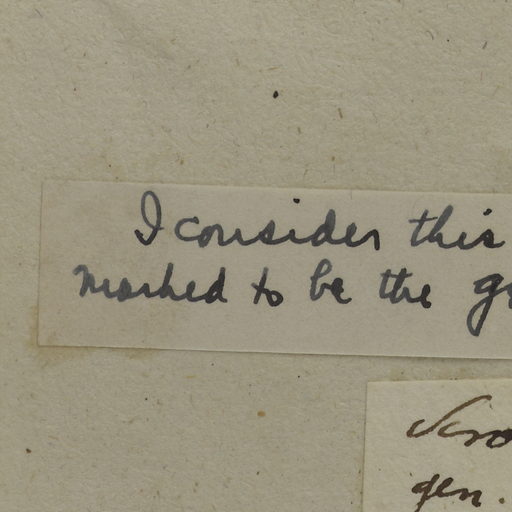 I consider this
marked to be the
gen.